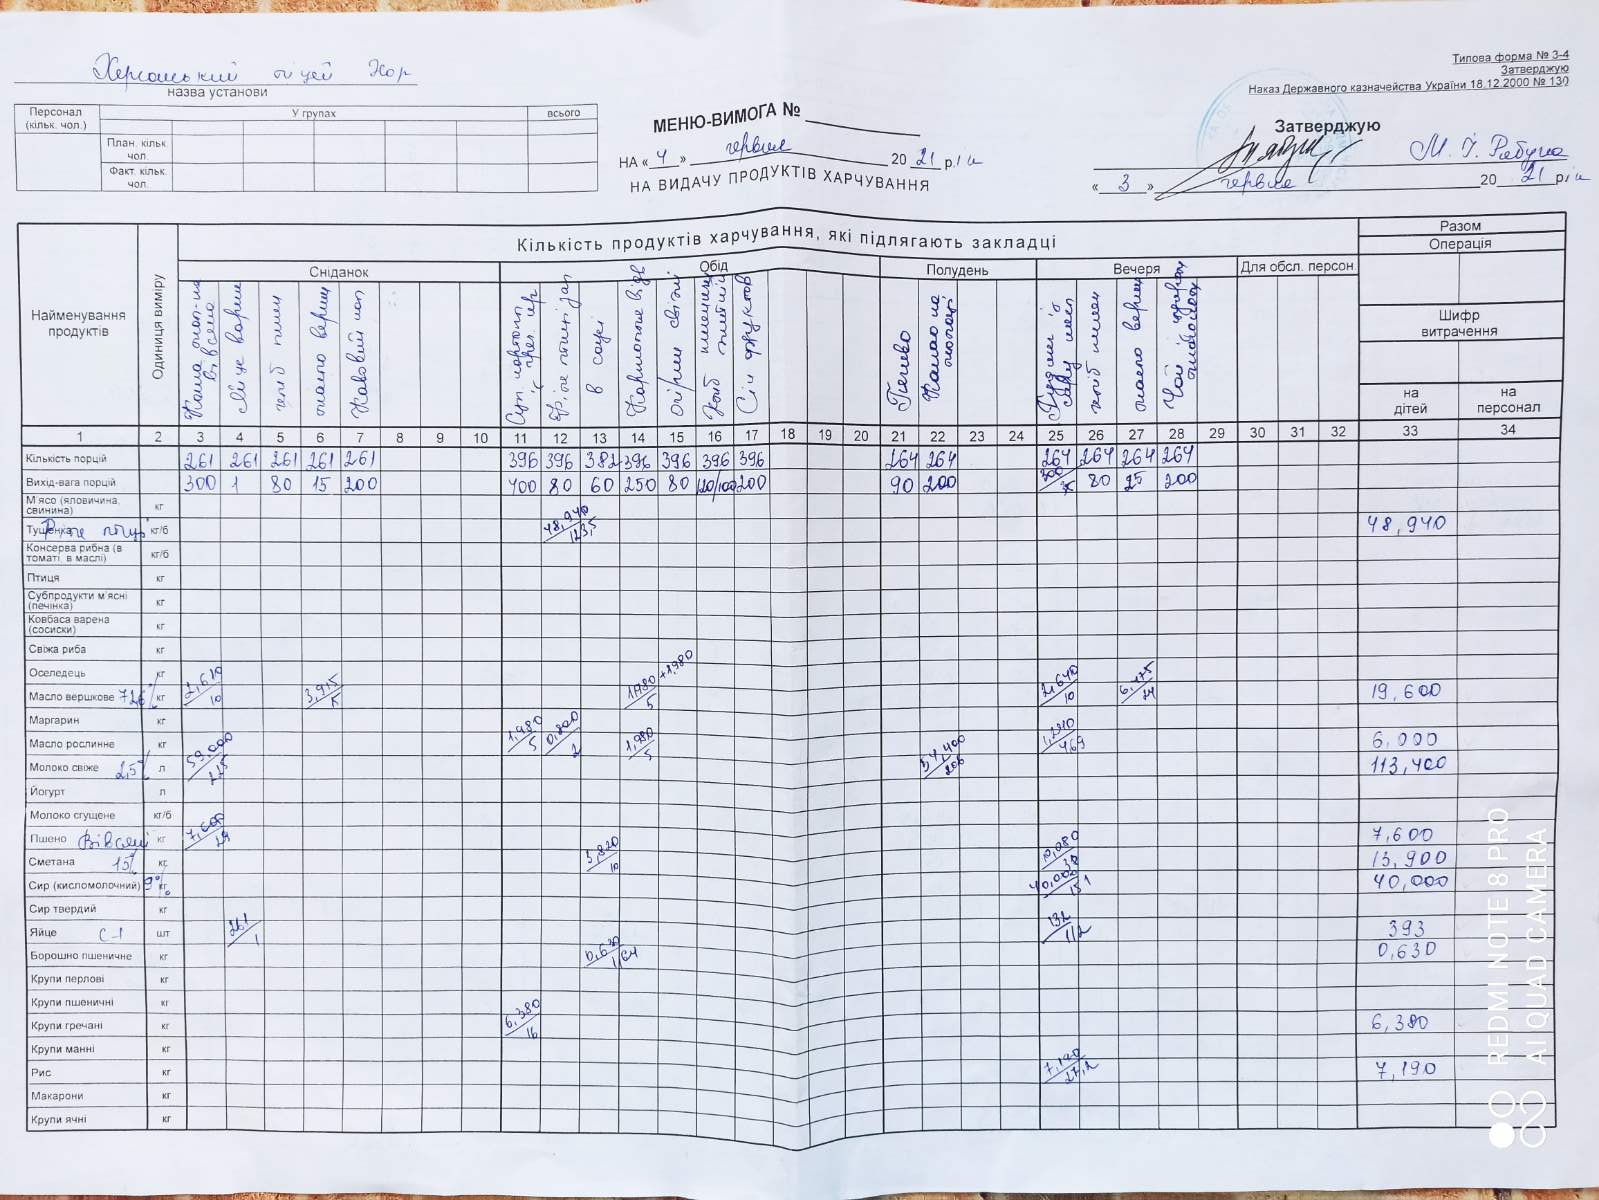 Херсонський ліцей ХОР
назва установи
Типова форма № 3-4
Затверджую
Наказ Державного казначейства України 18.12.2000 № 130
Персонал (кільк. чол.)
У групах
всього
План. кільк. чол.
Факт. кільк. чол.
МЕНЮ-ВИМОГА №
НА « 4 » червня 20 21 р.
НА ВИДАЧУ ПРОДУКТІВ ХАРЧУВАННЯ
Затверджую
М. І. Рябуха
« 3 » червня 20 21 р.
Найменування продуктів
Одиниця виміру
Кількість продуктів харчування, які підлягають закладці
Разом
Операція
Сніданок
Обід
Полудень
Вечеря
Для обсл. персон.
Шифр витрачення
на дітей
на персонал
Яйце варене
хліб пшен
масло верш
огірки свіжі
Сік фруктов
Печиво
Какао на молоці
масло верш
1 2 3 4 5 6 7 8 9 10 11 12 13 14 15 16 17 18 19 20 21 22 23 24 25 26 27 28 29 30 31 32 33 34
Кількість порцій 261 261 261 261 261 396 396 382 396 396 396 396 264 264 264 264 264 264
Вихід-вага порцій 300 1 80 15 200 400 80 60 250 80 120/100 200 90 200 80 25 200
М'ясо (яловичина, свинина) кг
Тушонка кг/б 48,940 123,5 48,940
Консерва рибна (в томаті, в маслі) кг/б
Птиця кг
Субпродукти м'ясні (печінка) кг
Ковбаса варена (сосиски) кг
Свіжа риба кг
Оселедець кг
Масло вершкове 72,6% кг 2,610/10 3,915 1,980+1,980/5 2,640/10 19,600
Маргарин кг
Масло рослинне кг 1,980/5 0,800/2 1,980/5 6,000
Молоко свіже 2,5% л 59,000 54,400/206 113,400
Йогурт л
Молоко сгущене кг/б
Пшено Вівсяні кг 7,600/29 7,600
Сметана 15% кг 3,820/10 10,080/38 13,900
Сир (кисломолочний) 9% кг 40,000/151 40,000
Сир твердий кг
Яйце С-1 шт 261/1 132/1/2 393
Борошно пшеничне кг 0,630/1,64 0,630
Крупи перлові кг
Крупи пшеничні кг
Крупи гречані кг 6,380/16 6,380
Крупи манні кг
Рис кг 7,190/27,2 7,190
Макарони кг
Крупи ячні кг
REDMI NOTE 8 PRO
AI QUAD CAMERA